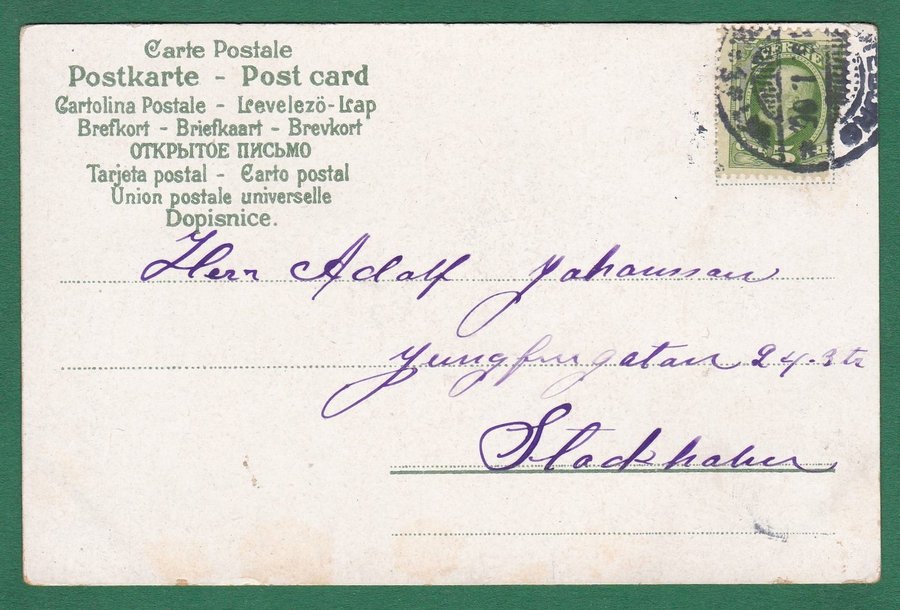 Carte Postale
Postkarte - Post card
Cartolina Postale - Levelezö-Lap
Brefkort - Briefkaart - Brevkort
ОТКРЫТОЕ ПИСЬМО
Tarjeta postal - Carto postal
Union postale universelle
Dopisnice.
Herr Adolf Johansson
Jungfrugatan 24-3 tr
Stockholm
5